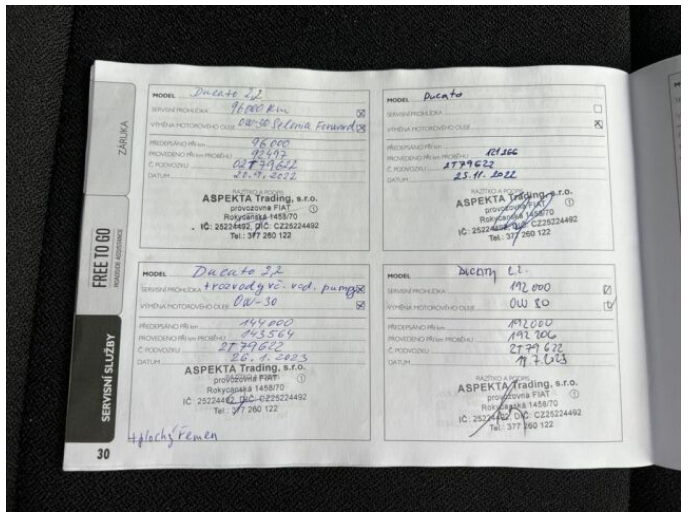 ZÁRUKA
FREE TO GO
SERVISNÍ SLUŽBY
30
MODEL Ducato 2,2
SERVISNÍ PROHLÍDKA 96 000 km
VÝMĚNA MOTOROVÉHO OLEJE 0W-30 Selenia Forward
PŘEDEPSÁNO PŘI km 96 000
PROVEDENO PŘI km PROBĚHU 92497
Č. PODVOZKU 02T79622
DATUM 20.9.2022
RAZÍTKO A PODPIS
ASPEKTA Trading, s.r.o.
provozovna FIAT ①
Rokycanská 1458/70
IČ: 25224492, DIČ: CZ25224492
Tel.: 377 260 122
MODEL Ducato
SERVISNÍ PROHLÍDKA
VÝMĚNA MOTOROVÉHO OLEJE
PŘEDEPSÁNO PŘI km
PROVEDENO PŘI km PROBĚHU 121266
Č. PODVOZKU 2T79622
DATUM 25.11.2022
RAZÍTKO A PODPIS
ASPEKTA Trading, s.r.o.
provozovna FIAT ①
Rokycanská 1458/70
IČ: 25224492, DIČ: CZ25224492
Tel.: 377 260 122
MODEL Ducato 2,2
SERVISNÍ PROHLÍDKA + rozvody vč. vod. pumpy
VÝMĚNA MOTOROVÉHO OLEJE 0W-30
PŘEDEPSÁNO PŘI km 144000
PROVEDENO PŘI km PROBĚHU 143564
Č. PODVOZKU 2T79622
DATUM 26.1.2023
ASPEKTA Trading, s.r.o.
provozovna FIAT ①
Rokycanská 1458/70
IČ: 25224492, DIČ: CZ25224492
Tel.: 377 260 122
+plochý řemen
MODEL
SERVISNÍ PROHLÍDKA 192 000
VÝMĚNA MOTOROVÉHO OLEJE 0W 30
PŘEDEPSÁNO PŘI km 192000
PROVEDENO PŘI km PROBĚHU 192 206
Č. PODVOZKU 2T79 622
DATUM
RAZÍTKO A PODPIS
ASPEKTA Trading, s.r.o.
provozovna FIAT ①
Rokycanská 1458/70
IČ: 25224492, DIČ: CZ25224492
Tel.: 377 260 122